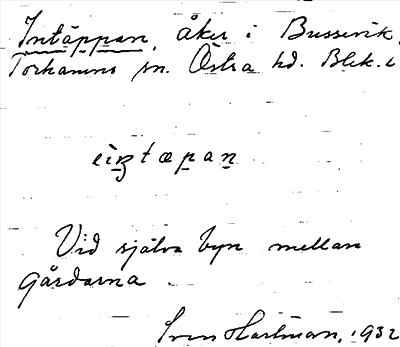 Intäppan, åker i Bussevik,
Torhamns sn. Östra hd. Blek. l
Vid själva byn mellan
gårdarna.
Sven Hartman, 1932